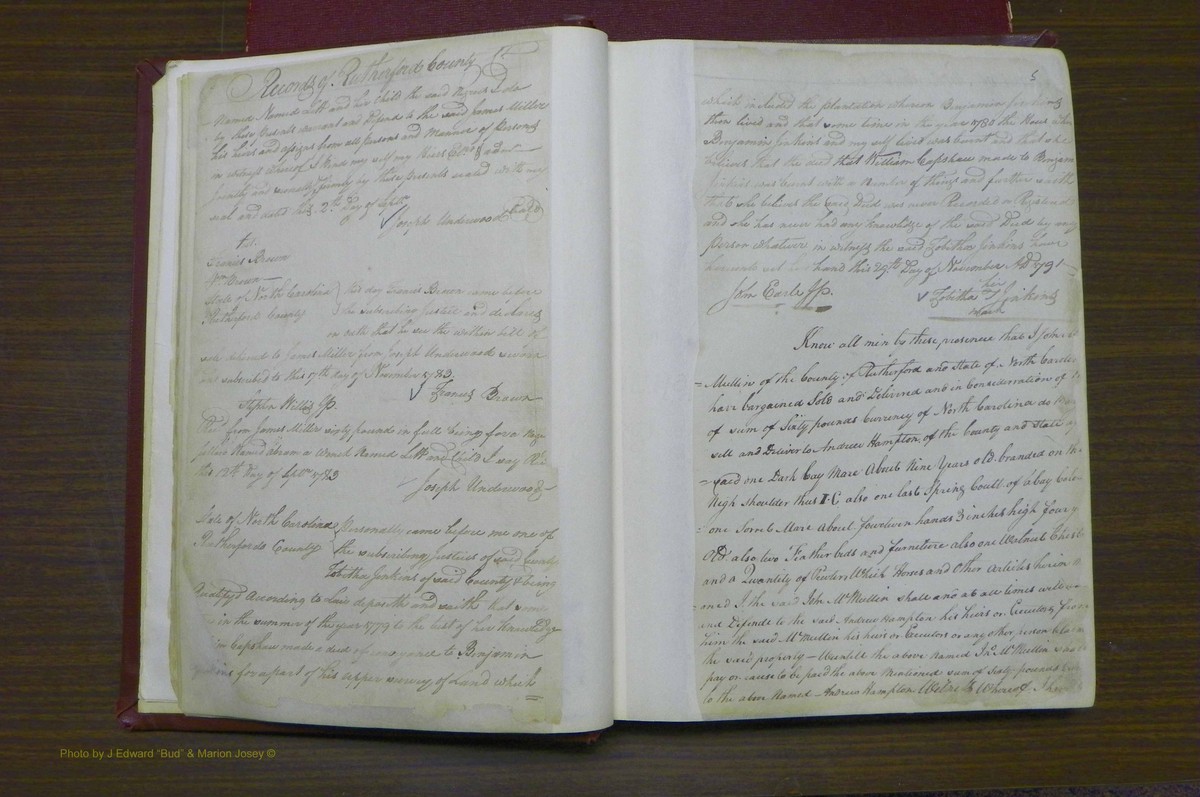 Records of Rutherford County
Named and her Child the said Negroes I do
by these presents warrant and Defend to the said James Miller
his heirs and assigns from all persons and Manner of Persons
in witness whereof I bind my self my Heirs
firmly by these presents sealed with my
seal and dated this 2th Day of Septr
Joseph Underwood Seal
Francis Brown
Wm Brown
State of North Carolina
Rutherford County
this day Francis Brown came before
the subscribing Justice and
on oath that he see the within bill of
James Miller from Joseph Underwood sworn
and subscribed to this 17th day of November 1783
Stephen Willis Jp.
Francis Brown
from James Miller sixty pounds in full being for a
Named and Child I say
this 12th Day of 1783
Joseph Underwood
State of North Carolina
Rutherfords County
Personally came before me one of
the subscribing Justices of said County
Tobitha Jenkins of said County & being
Qualifyd According to Law deposeth and saith that some
in the summer of the year 1779 to the best of her knowledge
Capshaw made a deed of to Benjamin
for a part of his upper survey of Land which
5
which included the plantation whereon Benjamin Jenkins
then lived and that some time in the year 1780 the House
Benjamin Jinkins and my self lived was burnt and that she
believes that the deed that William Capshaw made to Benjamin
Jinkins was burnt with a number of things and further saith
that she believes the said Deed was never Recorded or
and she has never had any knowledge of the said Deed by any
person whatever in witness the said Tobitha Jinkins have
hereunto set her hand this 29th Day of November AD 1791
John Earle Jp.
Tobitha her Jinkins
mark
Know all men by these presence that I John
Mullin of the County of Rutherford and State of North Carolina
have bargained Sold and Delivered and in Consideration of
of sum of Sixty pounds Currency of North Carolina do
sell and Deliver to Andrew Hampton of the County and State
said one Dark bay Mare About Nine Years old branded on the
Nigh Shoulder thus I.C also one last Spring Coult of a bay
one Sorrel Mare about fourteen hands 3 inches high four
Old also two Feather beds and furniture also one Walnut Chest
and a Quantity of Pewter Which Horses and Other Articles herein
I the said John McMullin shall and at all times
and Defende to the said Andrew Hampton his heirs or Executors from
him the said McMullin his heirs or Executors or any other person
the said property – Untill the above Named Jno. McMullin
pay or cause to be paid the above Mentioned sum of Sixty pounds
to the above Named – Andrew Hampton Whereof I
Photo by J Edward "Bud" & Marion Josey ©